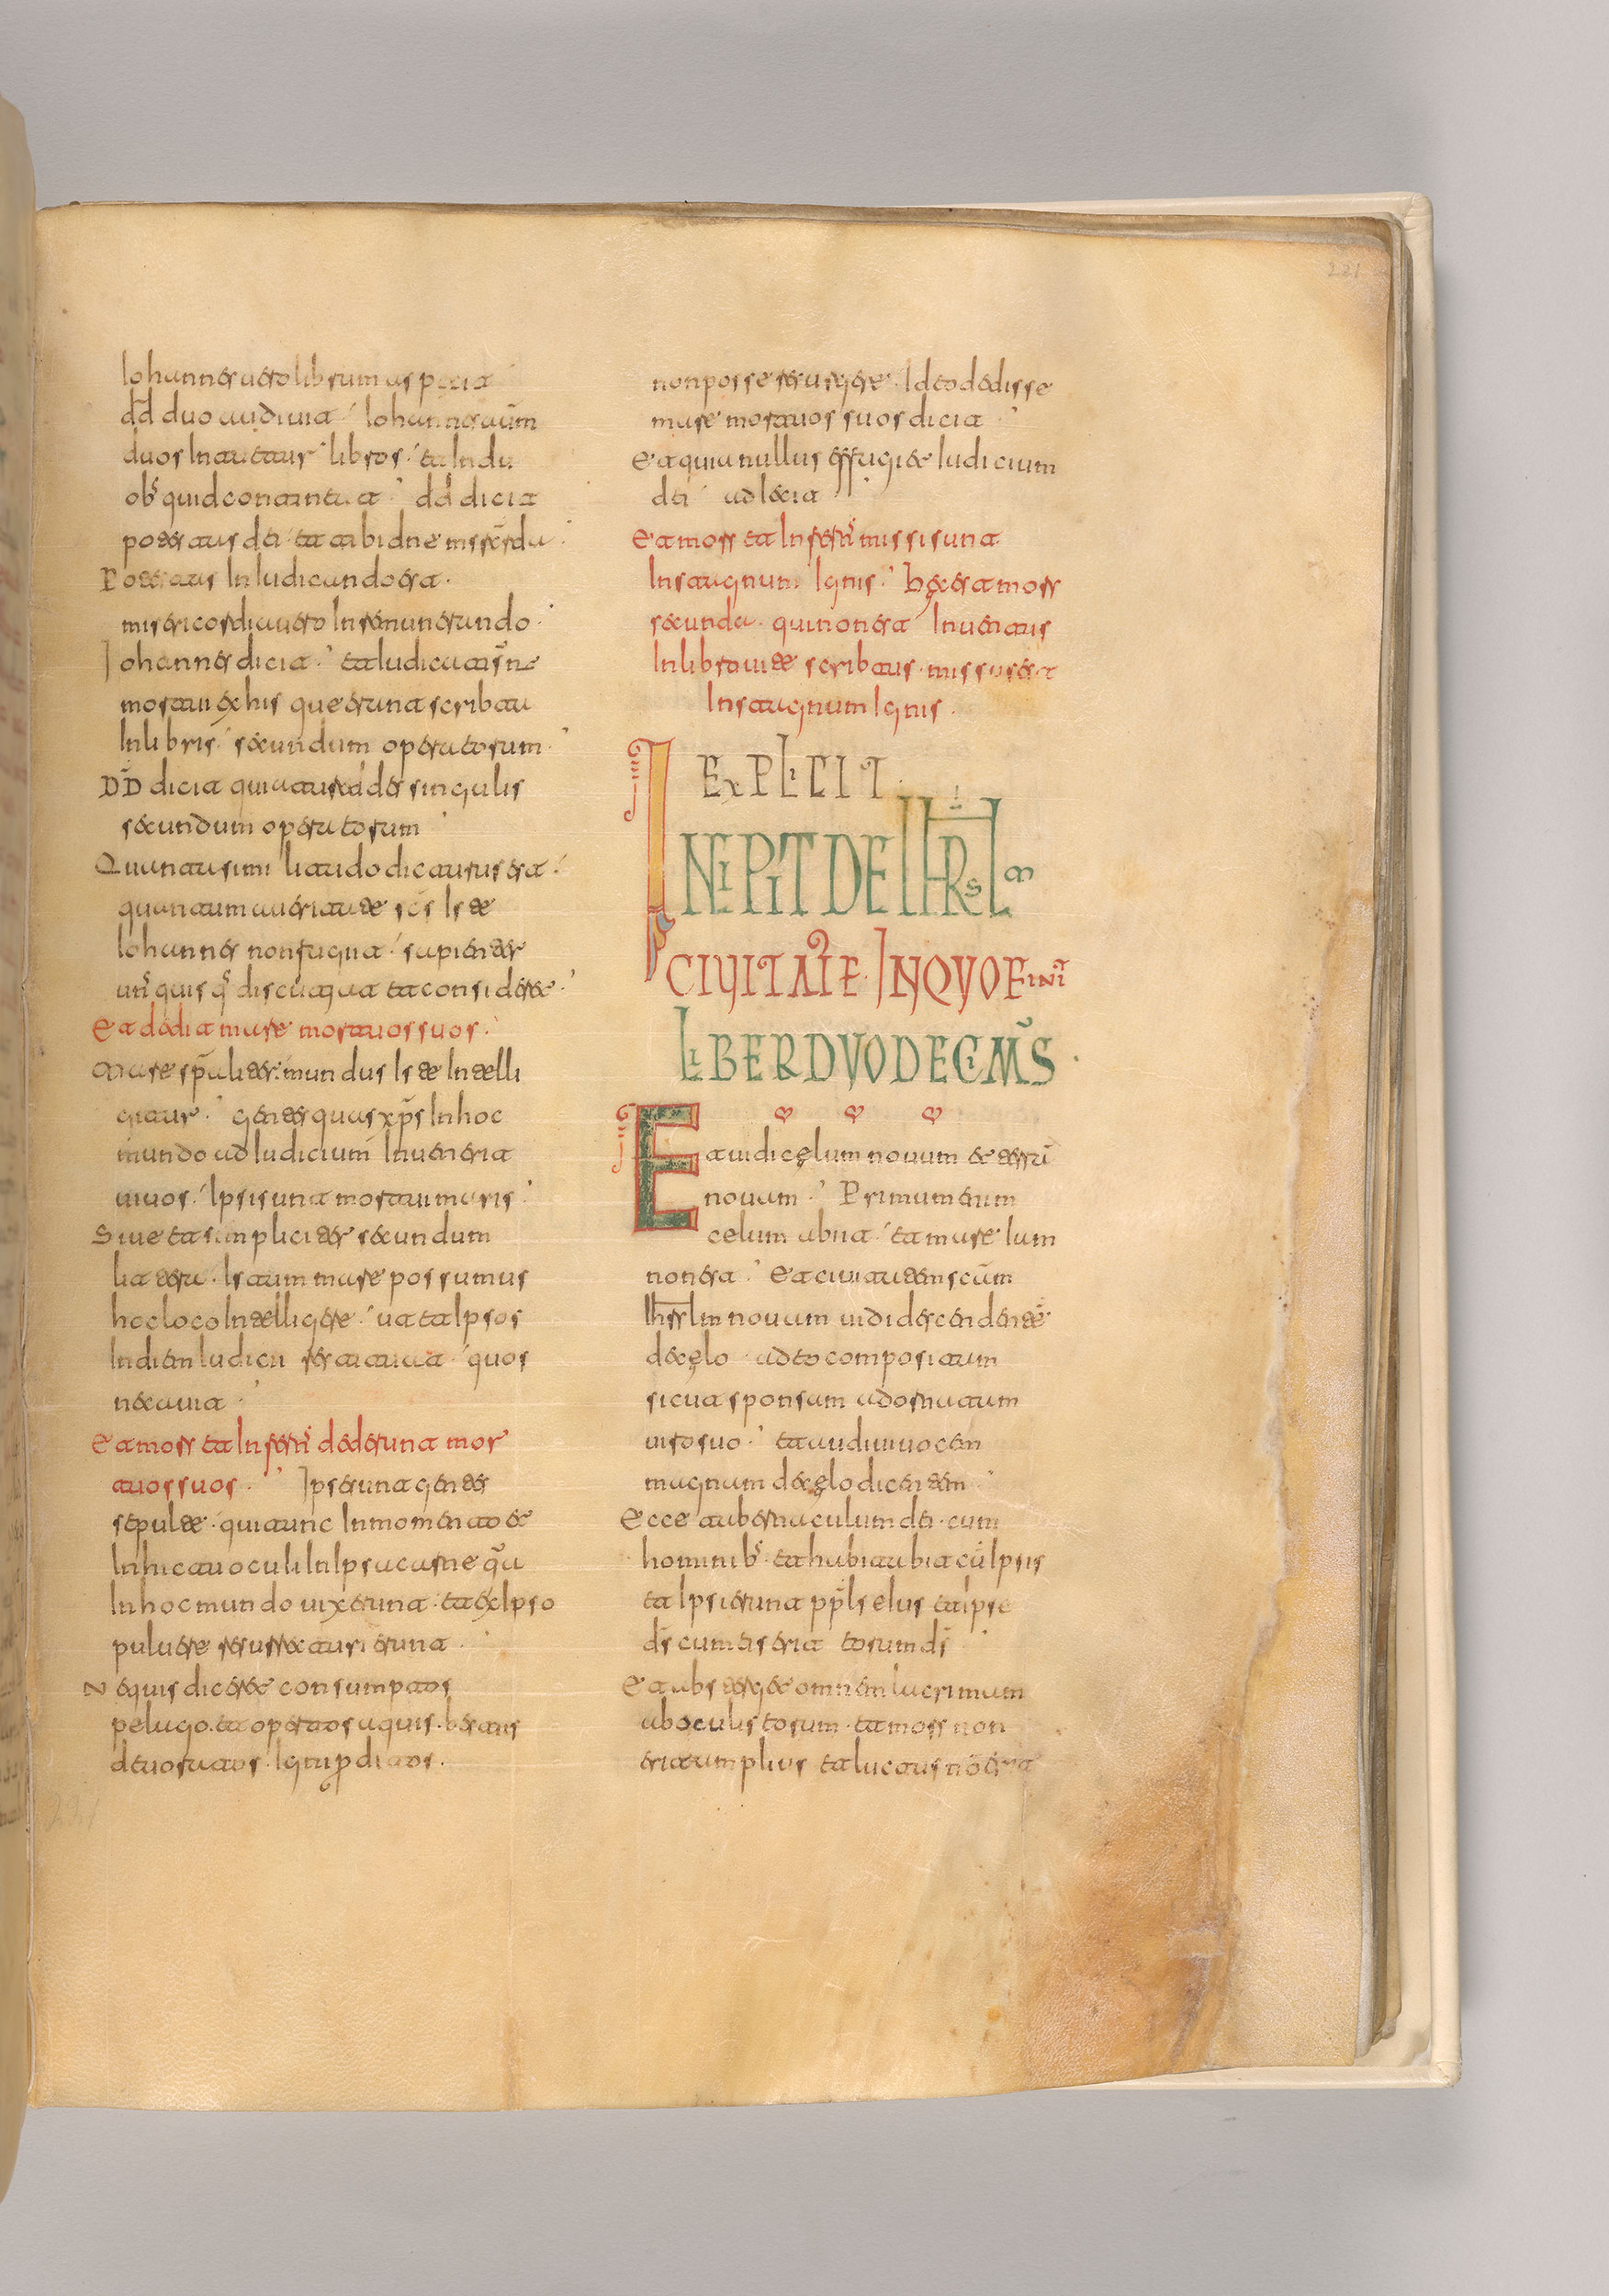 Iohannes uero librum asperit
dd duo audiuit. Iohannes aum
duos In libros. et In du
obs quid dd dicit
dei et tibi dne
Potestatis In Iudicando est.
misericordia uero In remunerando.
Iohannes dicit. et Iudicati sne
mortui ex his que erunt scribta
In libris. secundum opera eorum.
DD dicit quia tu reddes singulis
secundum opera eorum
dicturus est.
scs Iste
Iohannes non sapienter
unsquisq discutiat et consideret.
Et dedit mare mortuos suos.
Mare spaliter mundus Iste Intelli
gitur. gentesquas xps In hoc
mundo ad Iudicium Inuenerit
uiuos. Ipsi sunt mortui maris.
Siue et simpliciter secundum
litera. Istum mare possumus
hoc loco Intelligere. ut et Ipsos
In diem Iudicii quos
necauit.
Et mors et Infern dederunt mor
tuos suos. Ipse sunt gentes
sepulte. qui tunc In momento et
In hictu oculi In Ipsa carne qua
In hoc mundo uixerunt. et ex Ipso
puluere resurrecturi erunt.
Nequis diceret consumptos
pelago. et opertos aquis. bestiis
deuoratos. Igni pditos.
non posse resurgere. Ideo dedisse
mare mortuos suos dicit.
Et quia nullus effugiet Iudicium
dei adIecit
Et mors et Infern missi sunt
In stagnum Ignis. hec est mors
secunda. qui non est Inuentus
In libro uite scribtus. missus est
In stagnum Ignis.
EXPLICIT.
INCIPIT DE IHRSLM
CIVITATE. IN QVO FINIT
LIBER DVODECIMS.
Et uidi celum nouum et terrā
nouam. Primum enim
celum abiit. et mare Iam
non est. Et ciuitatem scām
Ihrslm nouam uidi descendente
de celo a deo compositam
sicut sponsam adornatam
uiro suo. et audiui uocem
magnam de celo dicentem.
Ecce tabernaculum dei. cum
hominibs. et habitabit cū Ipsis
et Ipsi erunt ppls eIus et Ipse
ds cum eis erit eorum ds.
Et absterget omnem lacrimam
ab oculis eorum. et mors non
erit amplius et luctus nō erit